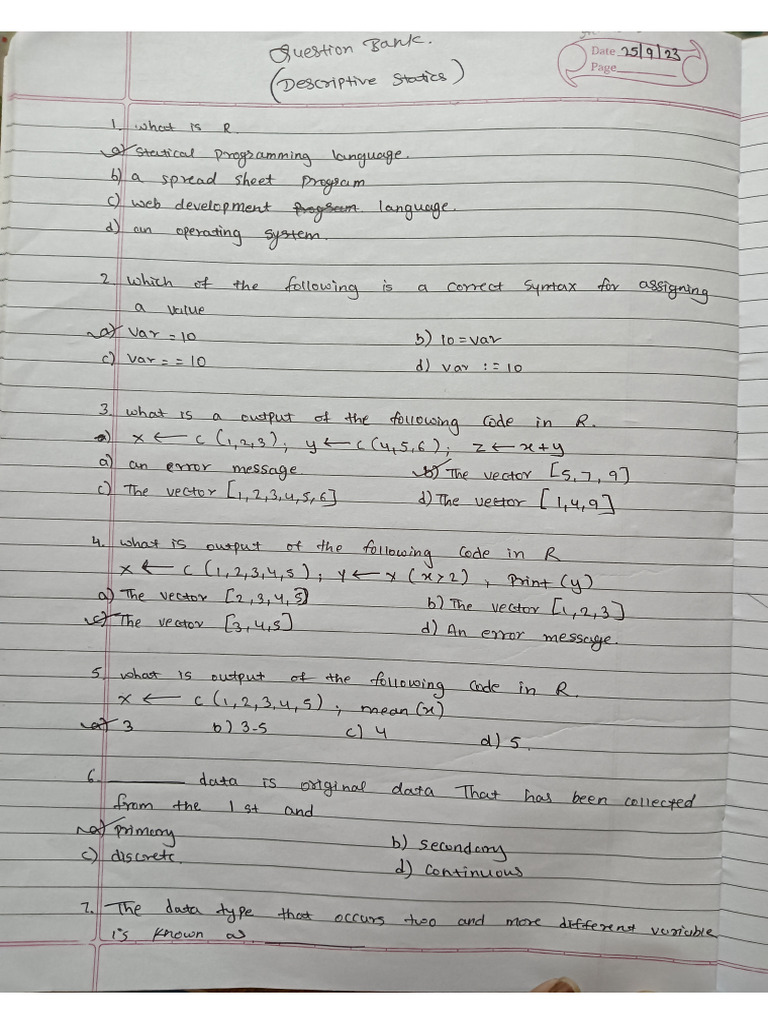 Question Bank.
(Descriptive Statics)
Date 25/9/23
Page
1. what is R.
a) Statical programming language.
b) a spread sheet program
c) web development program language.
d) an operating system.
2. which of the following is a correct syntax for assigning
a value
a) Var = 10
b) 10 = var
c) Var = = 10
d) var := 10
3. what is a output of the following code in R.
a) x ← c (1,2,3); y ← c(4,5,6); z ← x+y
a) an error message.
b) The vector [5,7,9]
c) The vector [1,2,3,4,5,6]
d) The vector [1,4,9]
4. what is output of the following code in R
x ← c (1,2,3,4,5); y ← x (x>2), print (y)
a) The vector [2,3,4,5]
b) The vector [1,2,3]
c) The vector [3,4,5]
d) An error message.
5. what is output of the following code in R.
x ← c (1,2,3,4,5); mean (x)
a) 3
b) 3-5
c) 4
d) 5.
6. ________ data is original data That has been collected
from the 1 st and
a) primary
b) secondary
c) discrete.
d) continuous
7. The data type that occurs two and more different variable
is known as ________